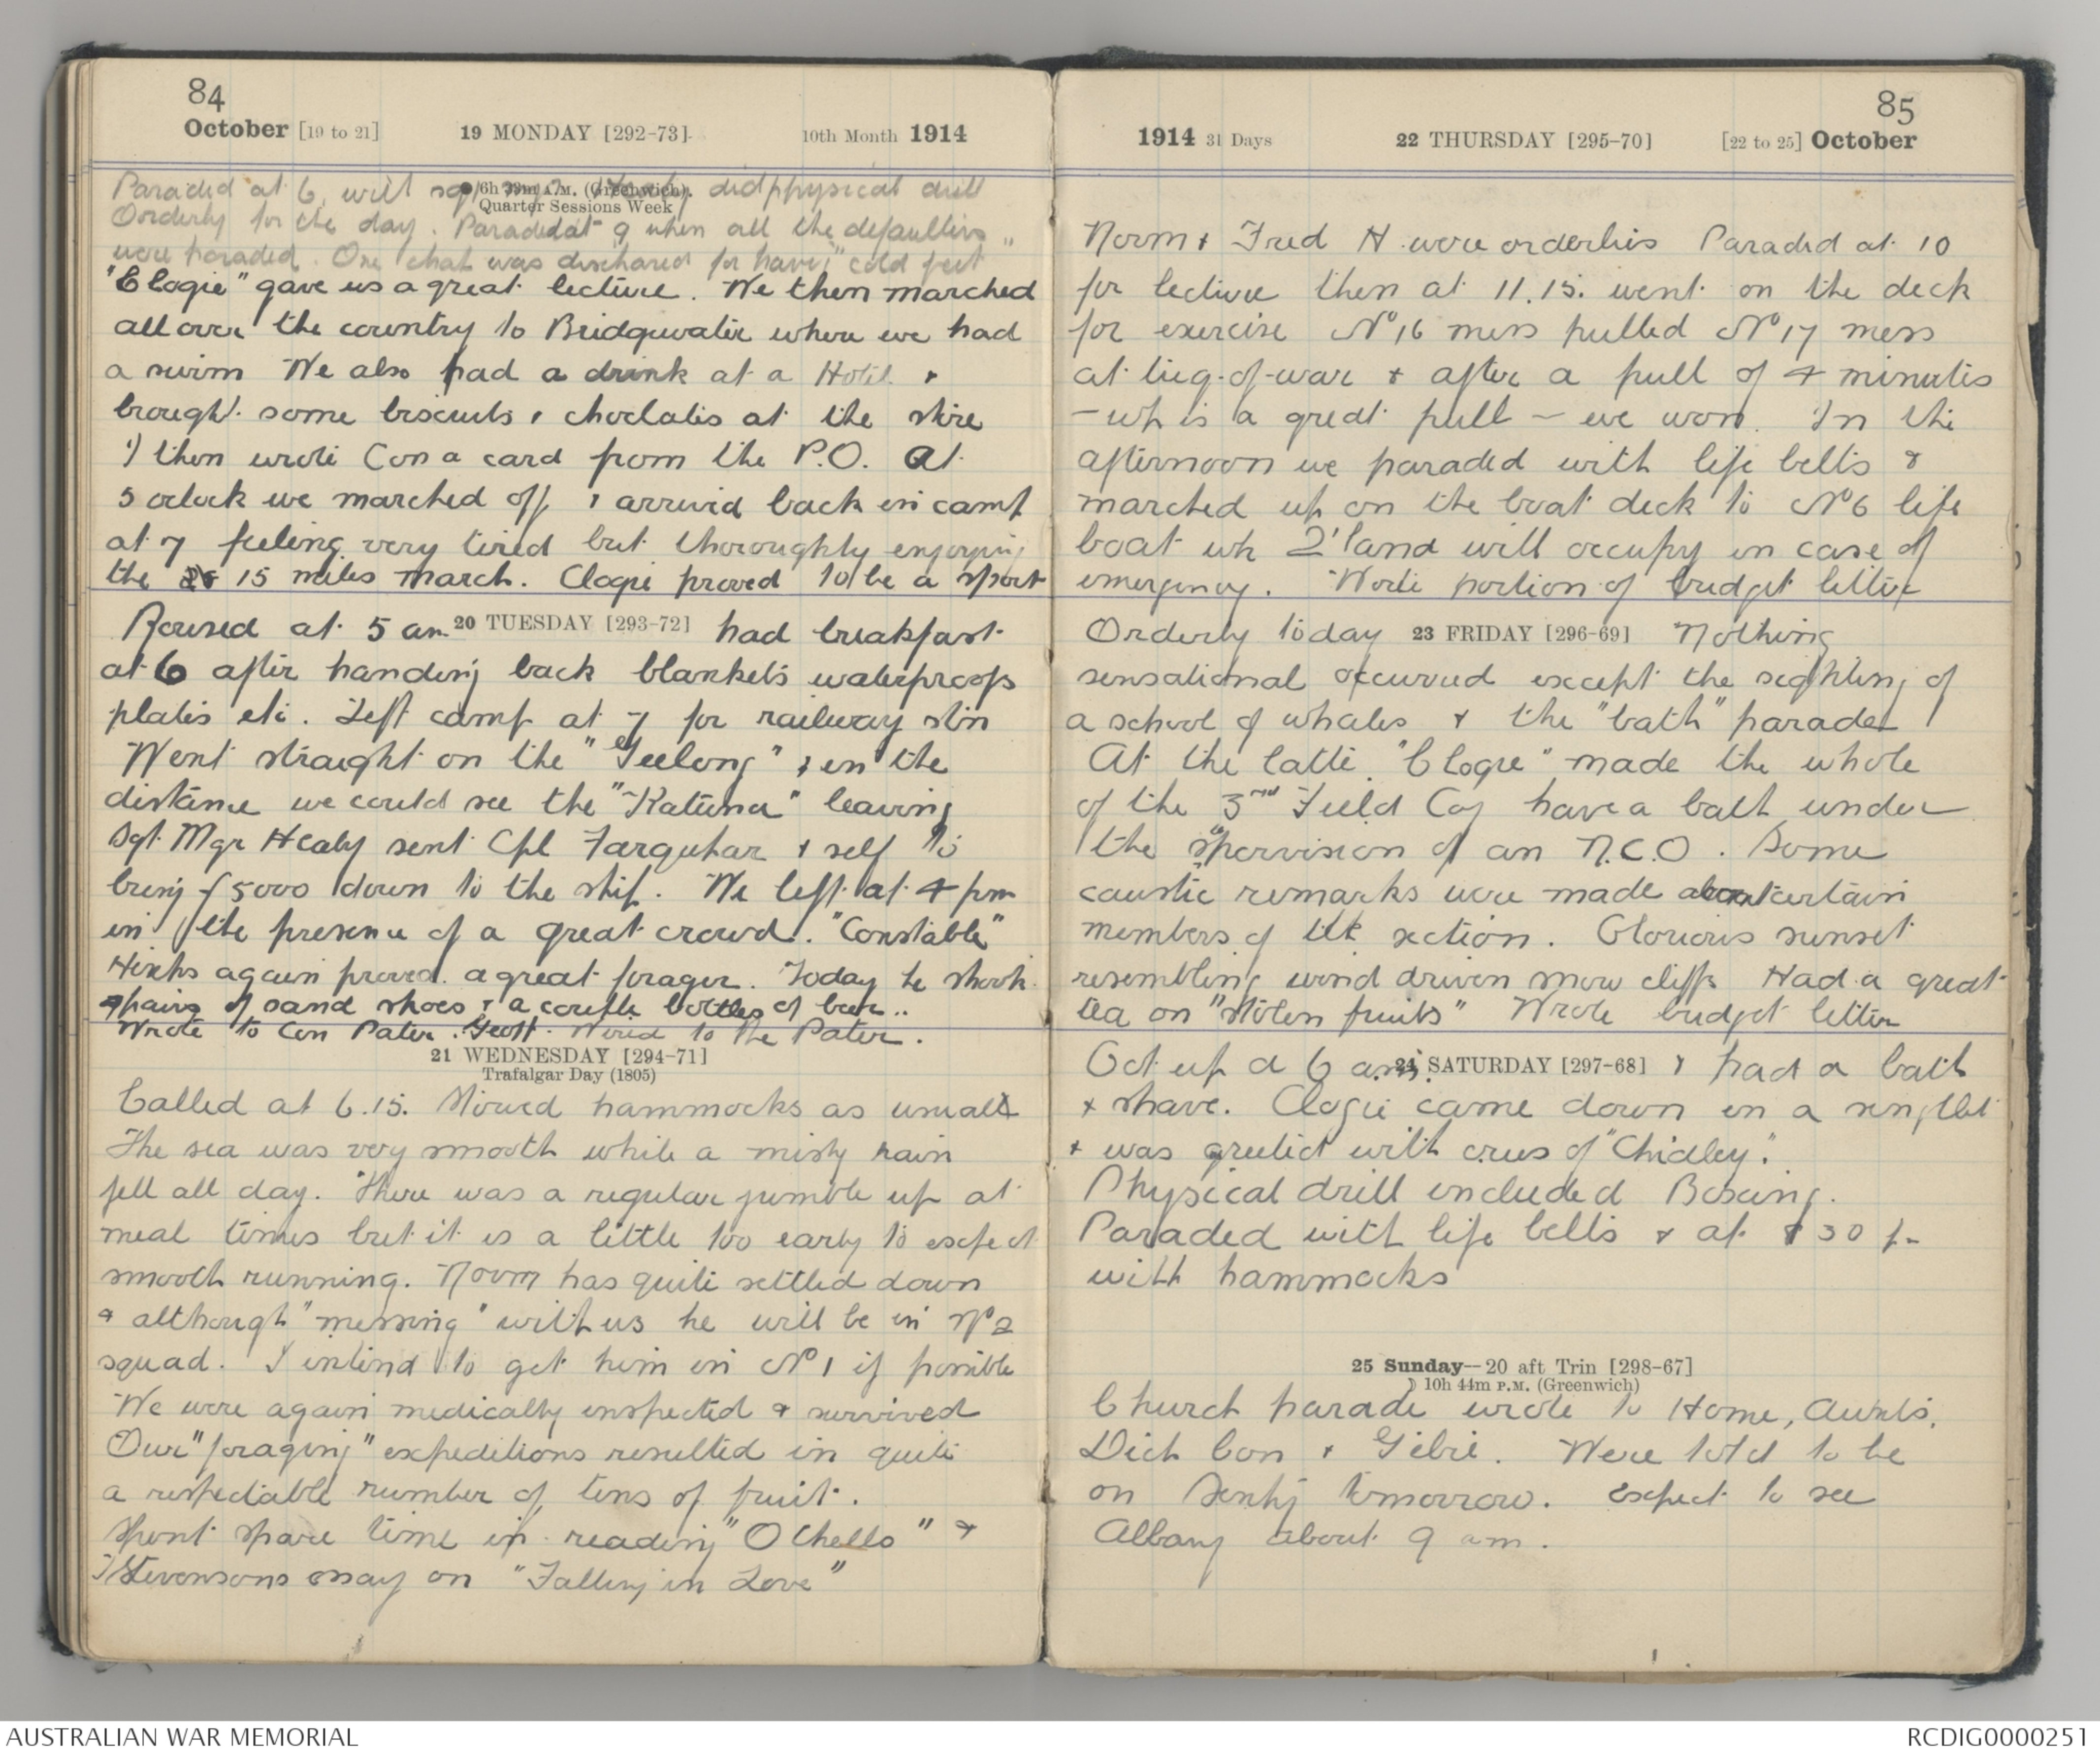 84
October [19 to 21] 19 MONDAY [292-73] 10th Month 1914
6h 33m A.M. (Greenwich).
Quarter Sessions Week
Paraded at 6, with did physical drill
Oorderly for the day. Paraded at 9 when all the defaulters
were paraded. One chat was dischared for having "cold feet"
"Clogie" gave us a great lecture. We then marched
all over the country to Bridgewater where we had
a swim We also had a drink at a Hotel &
brought some biscuits & choclates at the store
I then wrote Con a card from the P.O. At
5 oclock we marched off & arrived back in camp
at 7 feeling very tired but thoroughly enjoying
the 15 miles march. Clogie proved to be a sport
20 TUESDAY [293-72]
Roused at 5 am had breakfast
at 6 after handing back blankets waterproofs
plates etc. Left camp at 7 for railway stn
Went straight on the "Geelong" & in the
distance we could see the "Katuna" leaving
Sgt Mgr Healy sent Cpl Farquhar & self to
bring £5000 down to the ship. We left at 4 pm
in the presence of a great crowd. "Constable"
Hicks again proved a great forager. Today he shook
4 pairs of sand shoes & a couple bottles of beer..
Wrote to Con Pater. Geoff. Wired to the Pater.
21 WEDNESDAY [294-71]
Trafalgar Day (1805)
Called at 6.15. Stowed hammocks as usual
The sea was very smooth while a misty rain
fell all day. There was a regular jumble up at
meal times but it is a little too early to expect
smooth running. Norm has quite settled down
& although "messing" with us he will be in No 2
squad. I intend to get him in No 1 if possible
We were again medically inspected & survived
Our "foraging" expeditions resulted in quite
a respectable number of tins of fruit.
Spent spare time in reading "Othello" &
Stevensons essay on "Falling in Love"
85
1914 31 Days 22 THURSDAY [295-70] [22 to 25] October
Norm & Fred H were orderlies Paraded at 10
for lecture then at 11.15. went on the deck
for exercise No 16 mess pulled No 17 mess
at tug-of-war & after a pull of 4 minutes
- wh is a great pull - we won. In the
afternoon we paraded with life belts &
marched up on the boat deck to No 6 life
boat wh 2 land will occupy in case of
emergency. Wrote portion of budget letter
23 FRIDAY [296-69]
Orderly today Nothing
sensational occurred except the sighting of
a school of whales & the "bath" parade
At the latte. "Clogie" made the whole
of the 3rd Field Coy have a bath under
the supervision of an N.C.O. Some
caustic remarks were made about certain
members of the section. Glorious sunset
resembling wind driven snow cliffs Had a great
tea on "stolen fruits" Wrote budget letter
24 SATURDAY [297-68]
Got up a 6 am. & had a bath
& shave. Clogie came down in a singlet
& was greeted with cries of "Chidley".
Physical drill included Boxing.
Paraded with life belts & at 8 30 p-
with hammocks
25 Sunday—20 aft Trin [298-67]
☽ 10h 44m P.M. (Greenwich)
Church parade wrote to Home, Aunts,
Dick Con & Gebie. Were told to be
on Sentry tomorrow. Expect to see
Albany about 9 am.
AUSTRALIAN WAR MEMORIAL
RCDIG0000251